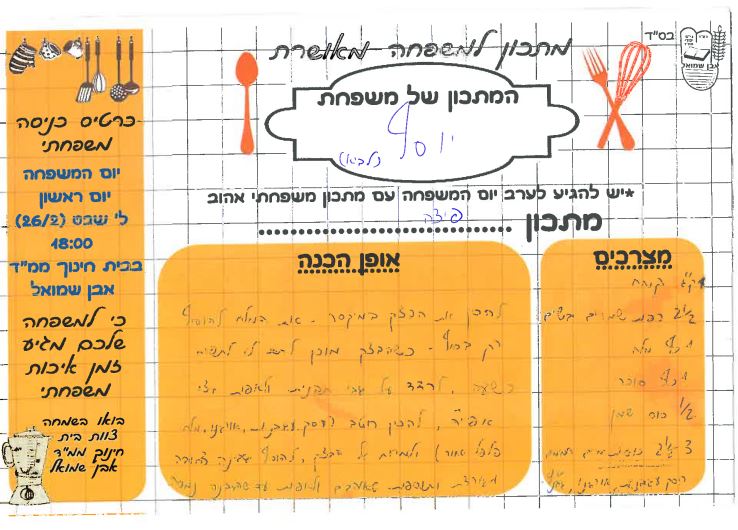 בס"ד
אבן שמואל
מתכון למשפחה מאושרת
המתכון של משפחת
יוסף
*יש להגיע לערב יום המשפחה עם מתכון משפחתי אהוב
מתכון פיצה
מצרכים
1 ק"ג קמח
2 1/2 כפות שמרים יבשים
1 כף מלח
1 כף סוכר
1/2 כוס שמן
3 כוסות מים
רסק עגבניות, אורגנו,
אופן הכנה
להכין את הבצק במיקסר - את המלח להוסיף
רק בסוף - כשהבצק מוכן לתת לו לתפוח
כשעה, לרדד על גבי תבנית ולאפות חצי
אפיה, להכין רוטב (רסק עגבניות, אורגנו, מלח
) ולמרוח על הבצק, להוסיף גבינה צהובה
מגורדת ותוספות שאוהבים ולאפות עד שהגבינה נמסה
כרטיס כניסה
משפחתי
יום המשפחה
יום ראשון
ל' שבט (26/2)
18:00
בבית חינוך ממ"ד
אבן שמואל
כי למשפחה
שלכם מגיע
זמן איכות
משפחתי
בואו בשמחה
צוות בית
חינוך ממ"ד
אבן שמואל